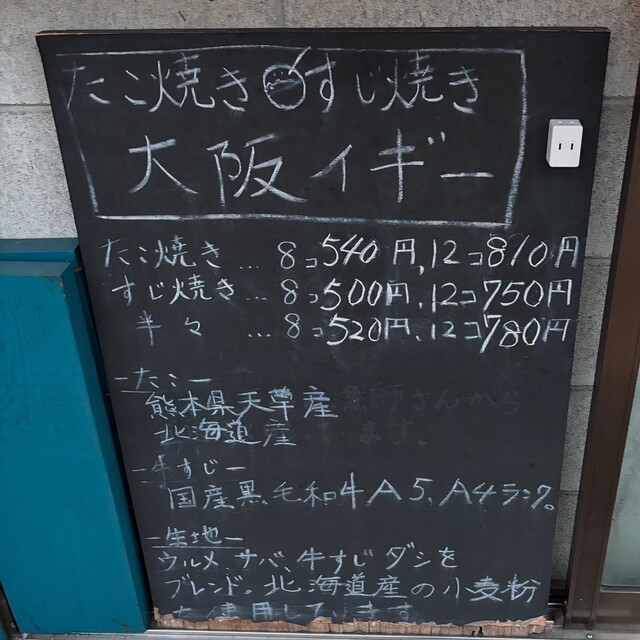 たこ焼き すじ焼き
大阪イギー
たこ焼き…8コ540円、12コ810円
すじ焼き…8コ500円、12コ750円
半々 …8コ520円、12コ780円
-たこ-
熊本県天草産
北海道産
-牛すじ-
国産黒毛和牛A5、A4ランク。
-生地-
ウルメ、サバ、牛すじダシを
ブレンド。北海道産の小麦粉
を使用しています